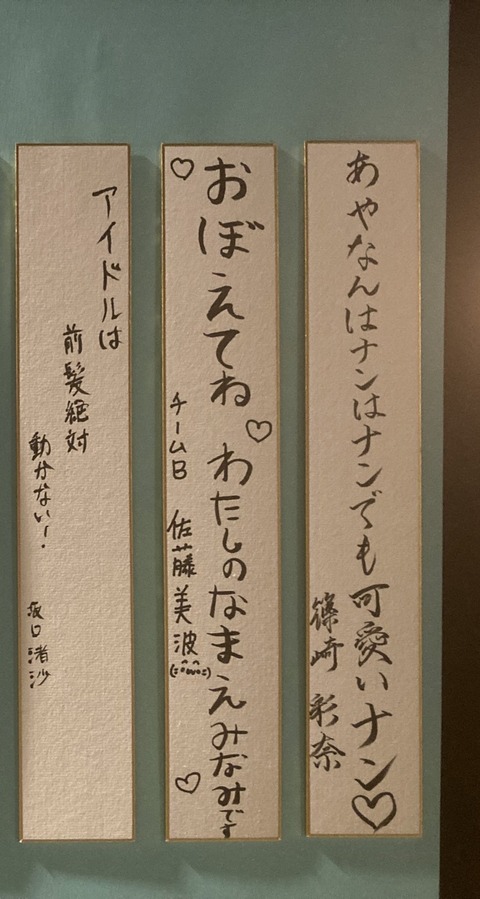 あやなんはナンはナンでも可愛いナン♡
篠崎 彩奈
♡おぼえてね♡わたしのなまえみなみです♡
チームB 佐藤美波
アイドルは
前髪絶対
動かない!
坂口渚沙